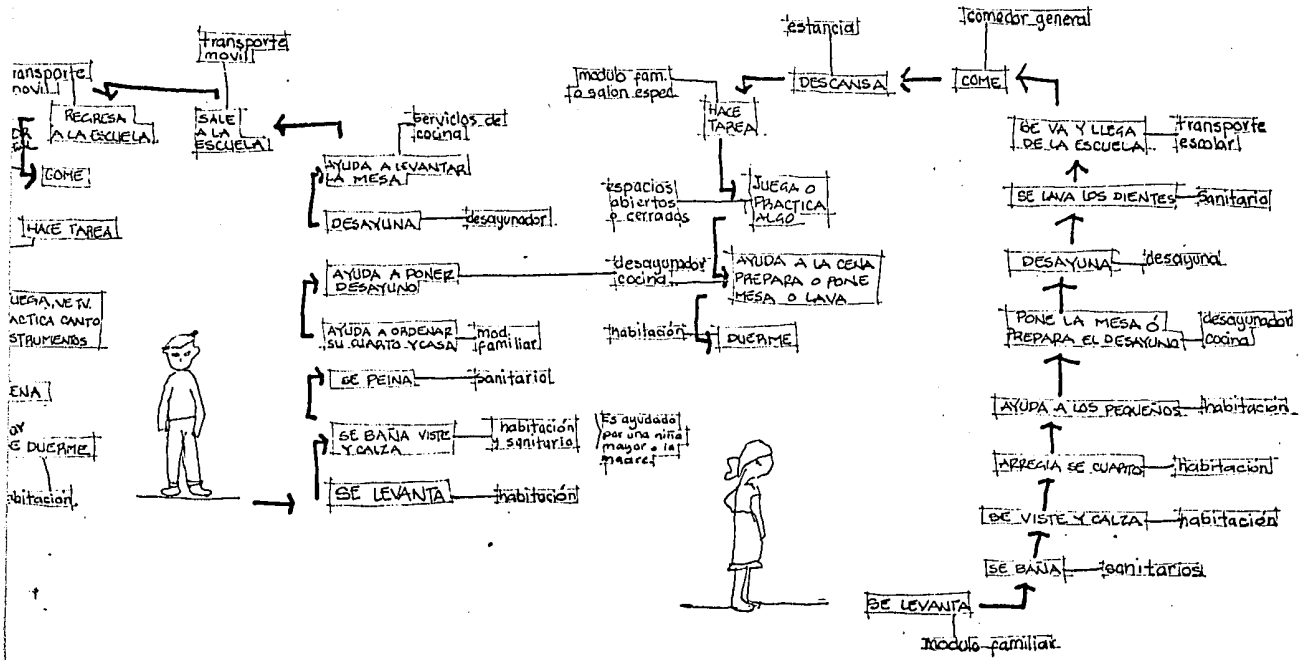 transporte
movil
REGRESA
A LA ESCUELA
COME
HACE TAREA
DUERME
transporte
movil
SALE
A LA
ESCUELA
servicios de
cocina
AYUDA A LEVANTAR
LA MESA
DESAYUNA
desayunador
AYUDA A PONER
DESAYUNO
AYUDA A ORDENAR
SU CUARTO Y CASA
mod.
familiar
SE PEINA
sanitario
SE BAÑA VISTE
Y CALZA
habitación
y sanitario
Es ayudado
por una niña
mayor o la
madre
SE LEVANTA
habitación
estancia
comedor general
modulo fam.
o salon espec.
HACE
TAREA
DESCANSA
COME
espacios
abiertos
o cerrados
JUEGA O
PRACTICA
ALGO
desayunador
cocina
AYUDA A LA CENA
PREPARA O PONE
MESA O LAVA
habitación
DUERME
SE VA Y LLEGA
DE LA ESCUELA
transporte
escolar
SE LAVA LOS DIENTES
sanitario
DESAYUNA
desayuna
PONE LA MESA Ó
PREPARA EL DESAYUNO
desayunador
cocina
AYUDA A LOS PEQUEÑOS
habitación
ARREGLA SE CUARTO
habitación
SE VISTE Y CALZA
habitación
SE BAÑA
sanitarios
SE LEVANTA
modulo familiar